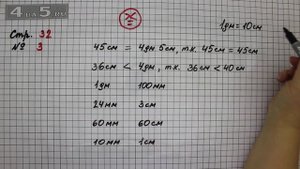 4 for 5.RU
Стр. 32
№ 3
1дм=10см
45см = 4дм 5см, т.к. 45см = 45см
36см < 4дм, т.к. 36см < 40см
1дм 100мм
24мм 3см
60мм 60см
10мм 1см